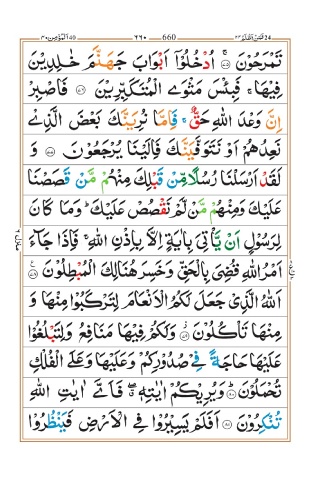 المؤمن ٤٠ ٦٦٠ 660 فمن اظلم ٢٤
تَمْرَحُوْنَ ۝٧٥ اُدْخُلُوْۤا اَبْوَابَ جَهَنَّمَ خٰلِدِيْنَ
فِيْهَا ۚ فَبِئْسَ مَثْوَى الْمُتَكَبِّرِيْنَ ۝٧٦ فَاصْبِرْ
اِنَّ وَعْدَ اللّٰهِ حَقٌّ ۚ فَاِمَّا نُرِيَنَّكَ بَعْضَ الَّذِيْ
نَعِدُهُمْ اَوْ نَتَوَفَّيَنَّكَ فَاِلَيْنَا يُرْجَعُوْنَ ۝٧٧ وَ
لَقَدْ اَرْسَلْنَا رُسُلًا مِّنْ قَبْلِكَ مِنْهُمْ مَّنْ قَصَصْنَا
عَلَيْكَ وَمِنْهُمْ مَّنْ لَّمْ نَقْصُصْ عَلَيْكَ ؕ وَمَا كَانَ
لِرَسُوْلٍ اَنْ يَّاْتِيَ بِاٰيَةٍ اِلَّا بِاِذْنِ اللّٰهِ ۚ فَاِذَا جَآءَ
اَمْرُ اللّٰهِ قُضِيَ بِالْحَقِّ وَخَسِرَ هُنَالِكَ الْمُبْطِلُوْنَ ۝٧٨
اَللّٰهُ الَّذِيْ جَعَلَ لَكُمُ الْاَنْعَامَ لِتَرْكَبُوْا مِنْهَا وَ
مِنْهَا تَاْكُلُوْنَ ۝٧٩ وَلَكُمْ فِيْهَا مَنَافِعُ وَلِتَبْلُغُوْا
عَلَيْهَا حَاجَةً فِيْ صُدُوْرِكُمْ وَعَلَيْهَا وَعَلَى الْفُلْكِ
تُحْمَلُوْنَ ۝٨٠ وَيُرِيْكُمْ اٰيٰتِهٖ ۖ فَاَيَّ اٰيٰتِ اللّٰهِ
تُنْكِرُوْنَ ۝٨١ اَفَلَمْ يَسِيْرُوْا فِي الْاَرْضِ فَيَنْظُرُوْا